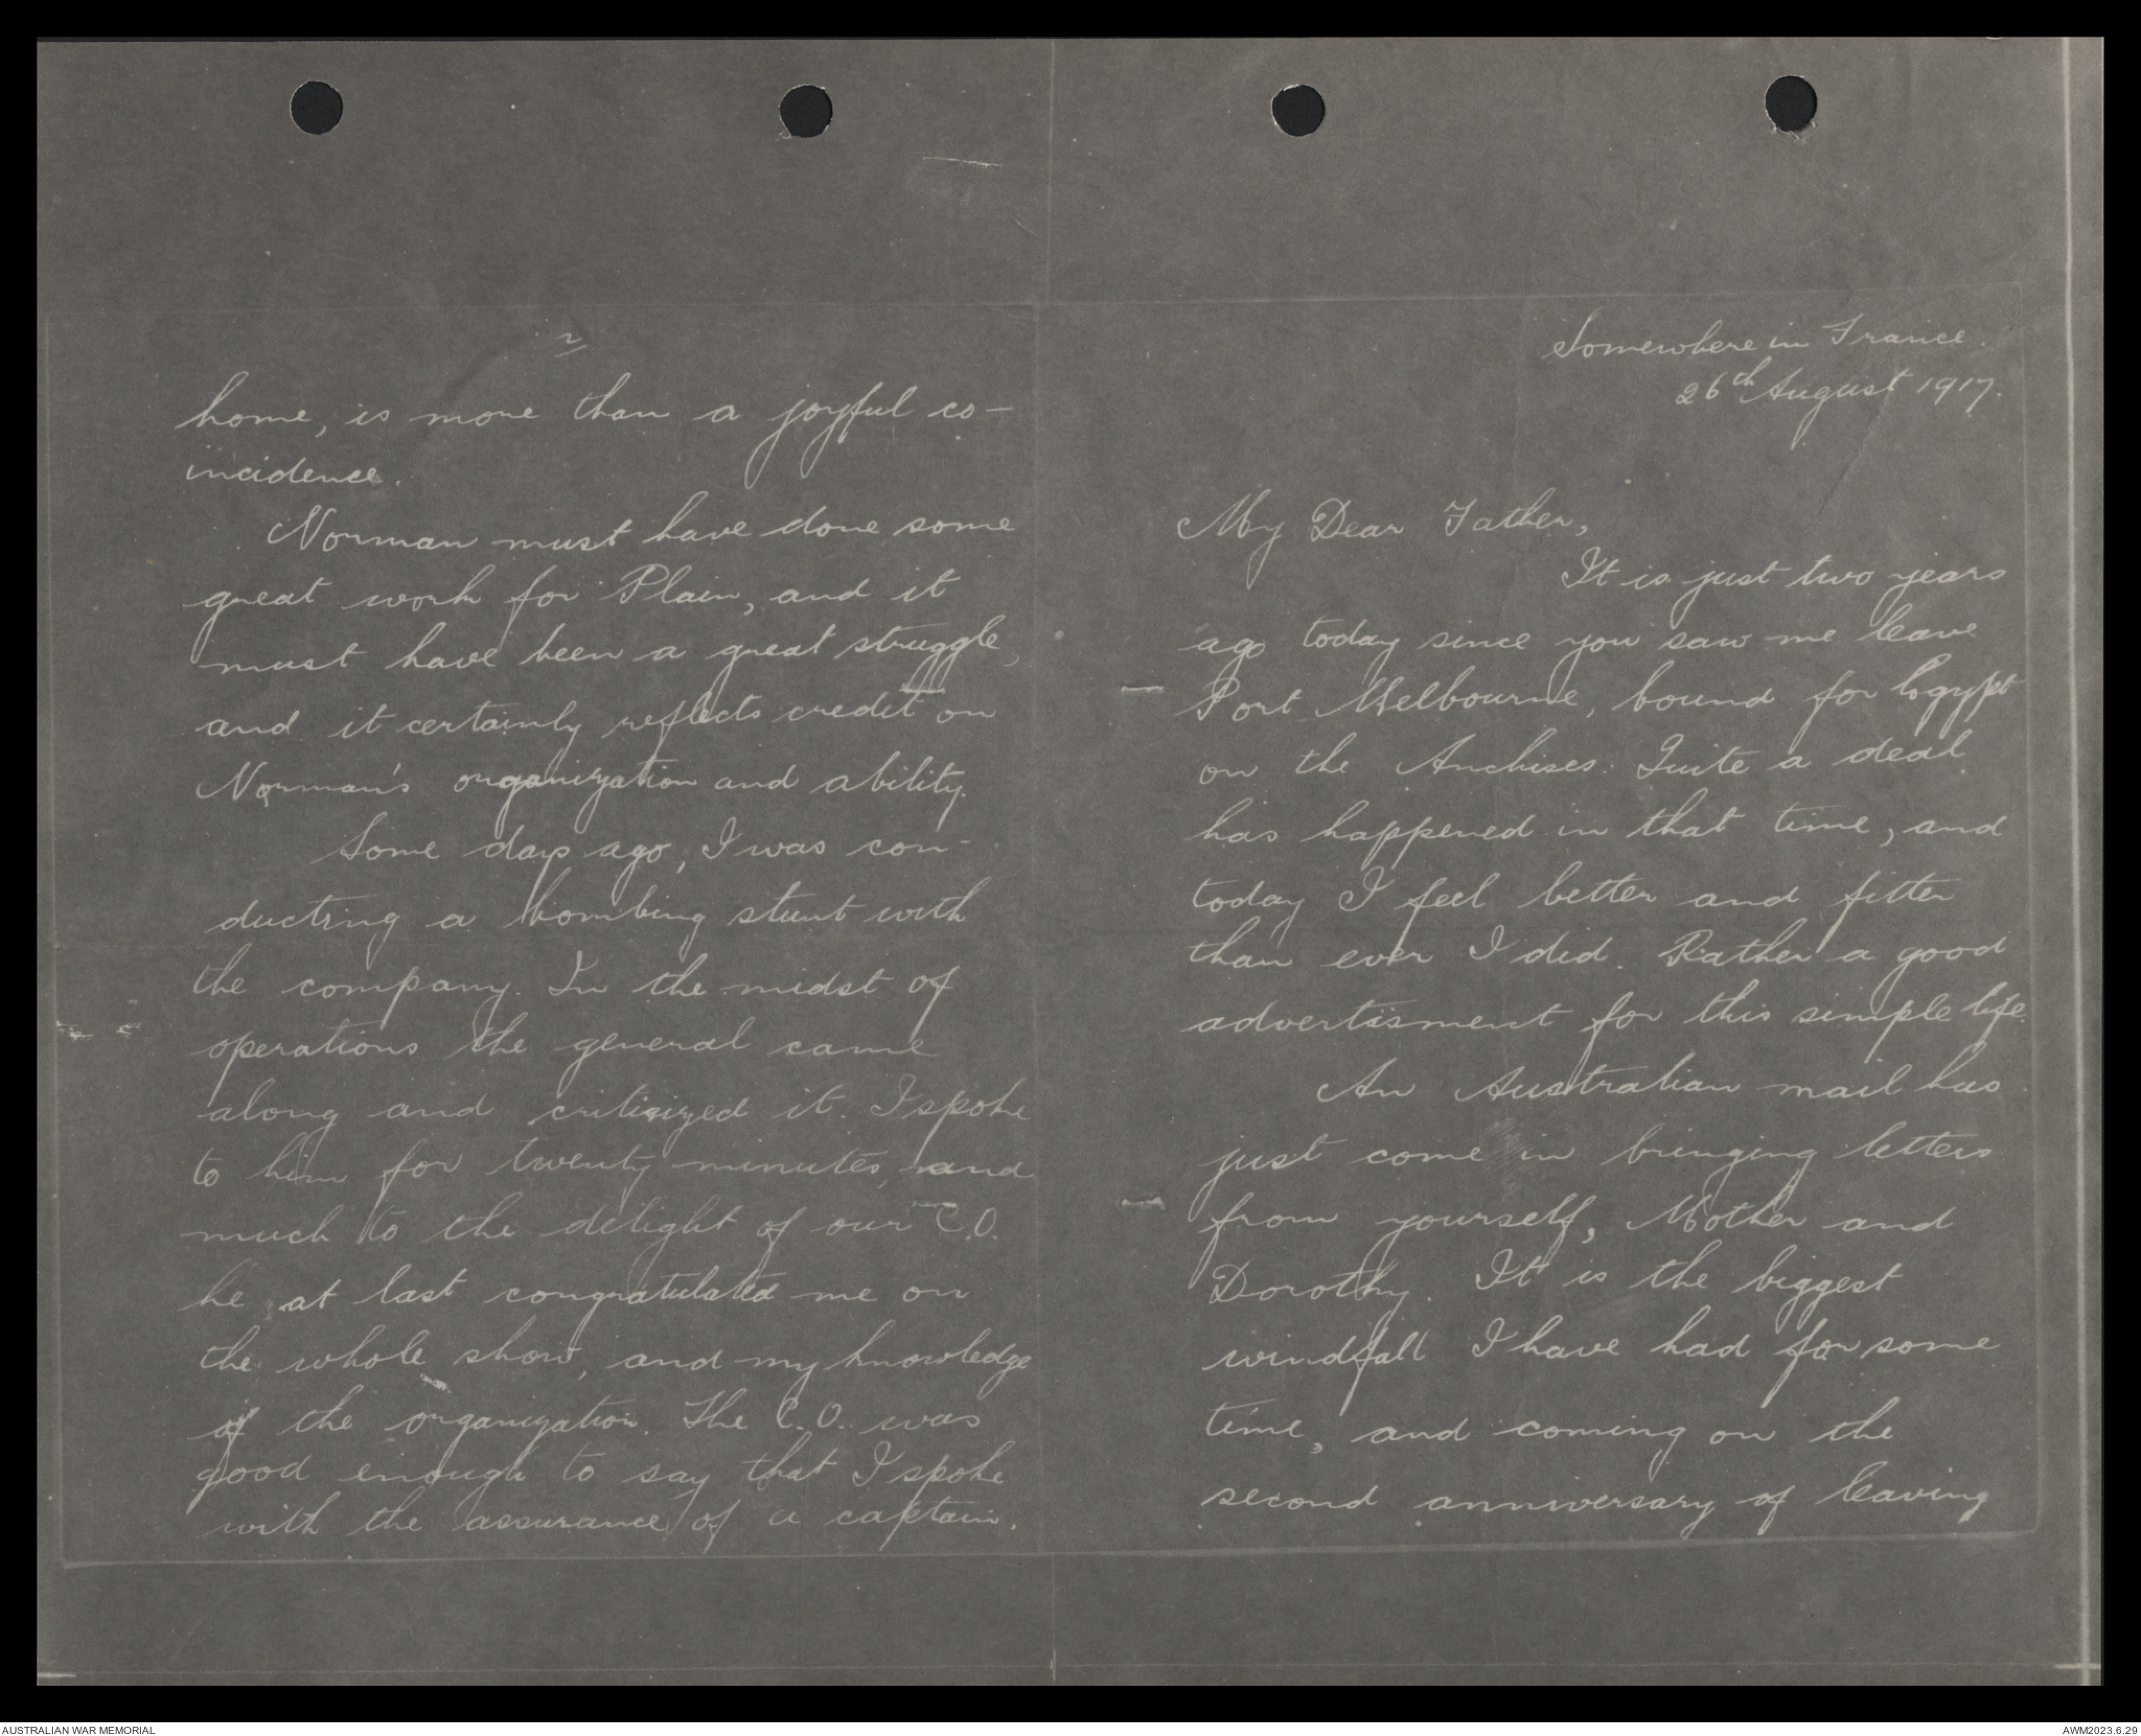 Somewhere in France.
26th August 1917.
My Dear Father,
It is just two years
ago today since you saw me leave
Port Melbourne, bound for Egypt
on the Anchises. Quite a deal
has happened in that time, and
today I feel better and fitter
than ever I did. Rather a good
advertisment for this simple life.
An Australian mail has
just come in bringing letters
from yourself, Mother and
Dorothy. It is the biggest
windfall I have had for some
time, and coming on the
second anniversary of leaving
2
home, is more than a joyful co-
incidence.
Norman must have done some
great work for Plain, and it
must have been a great struggle,
and it certainly reflects credit on
Norman's organization and ability.
Some days ago, I was con-
ducting a bombing stunt with
the company. In the midst of
operations the general came
along and critisized it. I spoke
to him for twenty minutes, and
much to the delight of our C.O.
he, at last congratulated me on
the whole show, and my knowledge
of the organization. The C.O. was
good enough to say that I spoke
with the assurance of a captain.
AUSTRALIAN WAR MEMORIAL
AWM2023.6.29